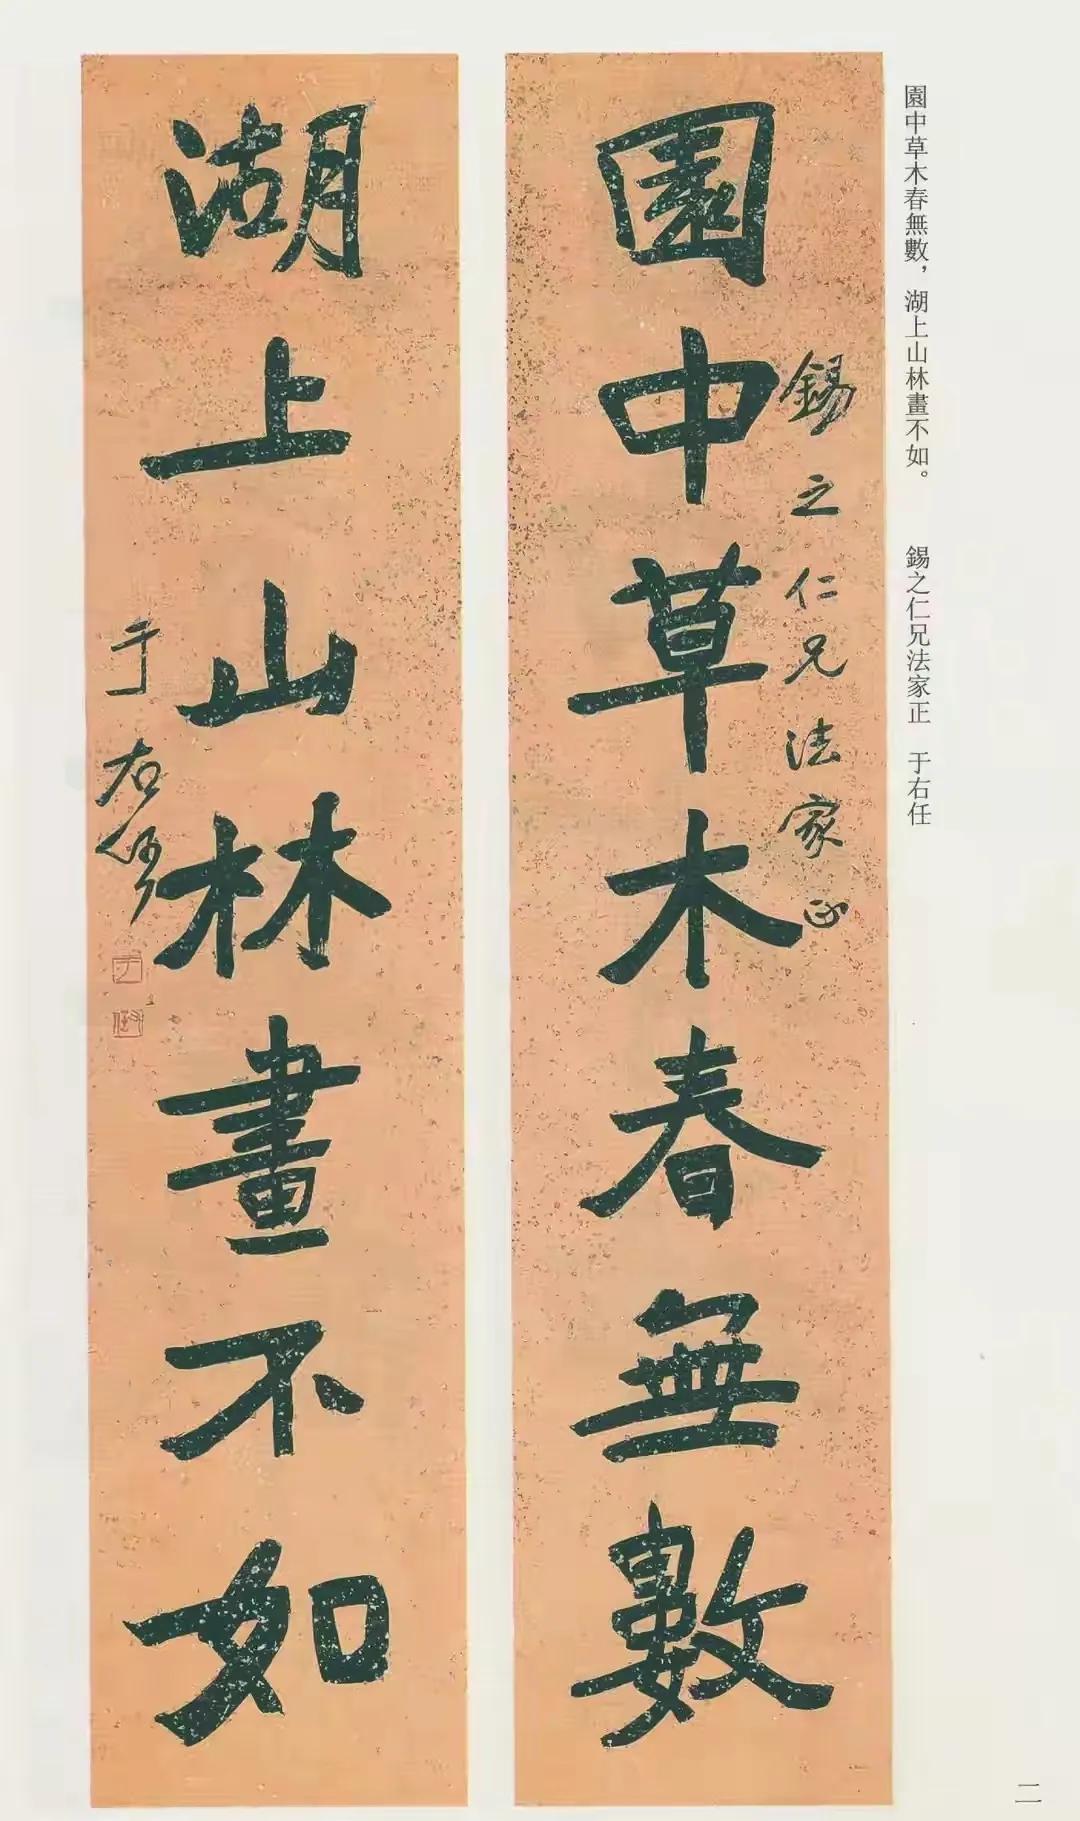 園中草木春無數,湖上山林畫不如。 錫之仁兄法家正 于右任
錫之仁兄法家正
園中草木春無數
湖上山林畫不如
于右任
二